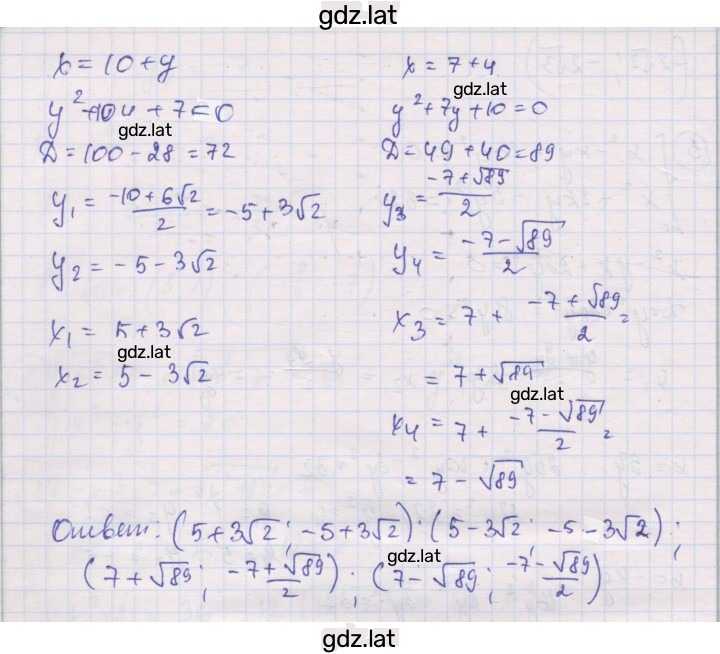 gdz.lat
x = 10 + y
y² + 10y + 7 = 0
gdz.lat
D = 100 - 28 = 72
y₁ = (-10 + 6√2)/2 = -5 + 3√2
y₂ = -5 - 3√2
x₁ = 5 + 3√2
gdz.lat
x₂ = 5 - 3√2
x = 7 + y
gdz.lat
y² + 7y + 10 = 0
D = 49 + 40 = 89
y₃ = (-7 + √89)/2
gdz.lat
y₄ = (-7 - √89)/2
x₃ = 7 + (-7 + √89)/2 =
= 7 + √89
gdz.lat
x₄ = 7 + (-7 - √89)/2 =
= 7 - √89
gdz.lat
Ответ: (5 + 3√2; -5 + 3√2); (5 - 3√2; -5 - 3√2);
gdz.lat
(7 + √89; (-7 + √89)/2); (7 - √89; (-7 - √89)/2)
gdz.lat